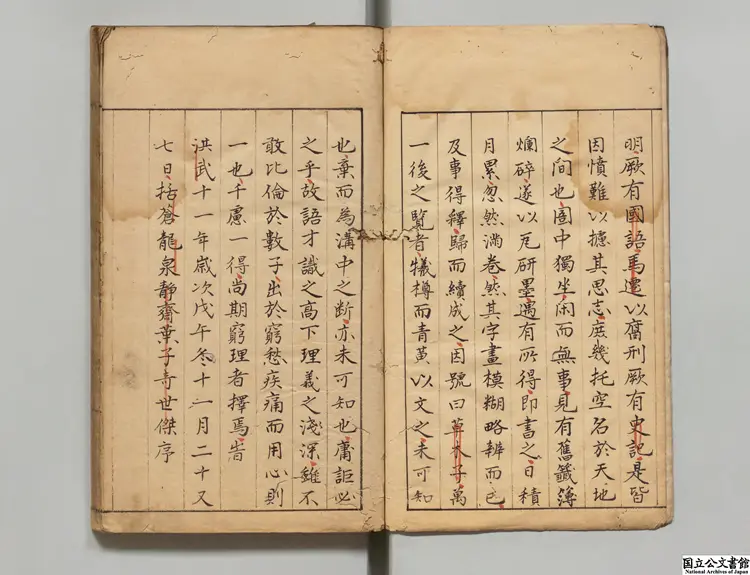 明厥有國語馬遷以腐刑厥有史記是皆
因憤難以攄其思志庻幾托空名於天地
之間也圄中獨坐閑而無事見有舊籖簿
爛碎遂以瓦研墨遇有所得即書之日積
月累忽然滿卷然其字畫模糊略辨而已
及事得釋歸而續成之因號曰草木子萬
一後之覽者犧樽而青黄以文之未可知
也棄而為溝中之斷亦未可知也庸詎必
之乎故語才識之高下理義之淺深雖不
敢比倫於數子出於窮愁疾痛而用心則
一也千慮一得尚期窮理者擇焉旹
洪武十一年歲次戊午冬十一月二十又
七日括蒼龍泉靜齋葉子奇世傑序
国立公文書館
National Archives of Japan